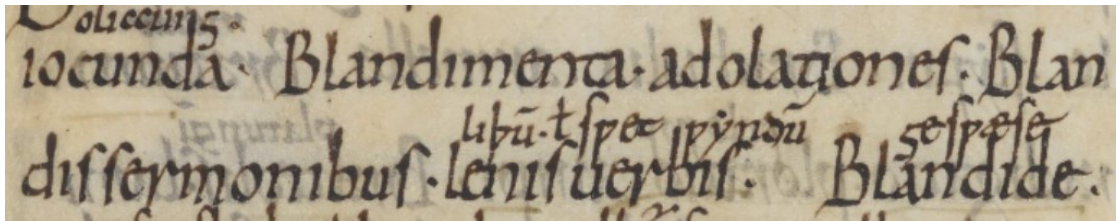 oliccung
iocunda. Blandimenta. adolationes. Blan
libū. ł spet pẏrdū gespæse
dissermonibus. lenis uerbis. Blandide.